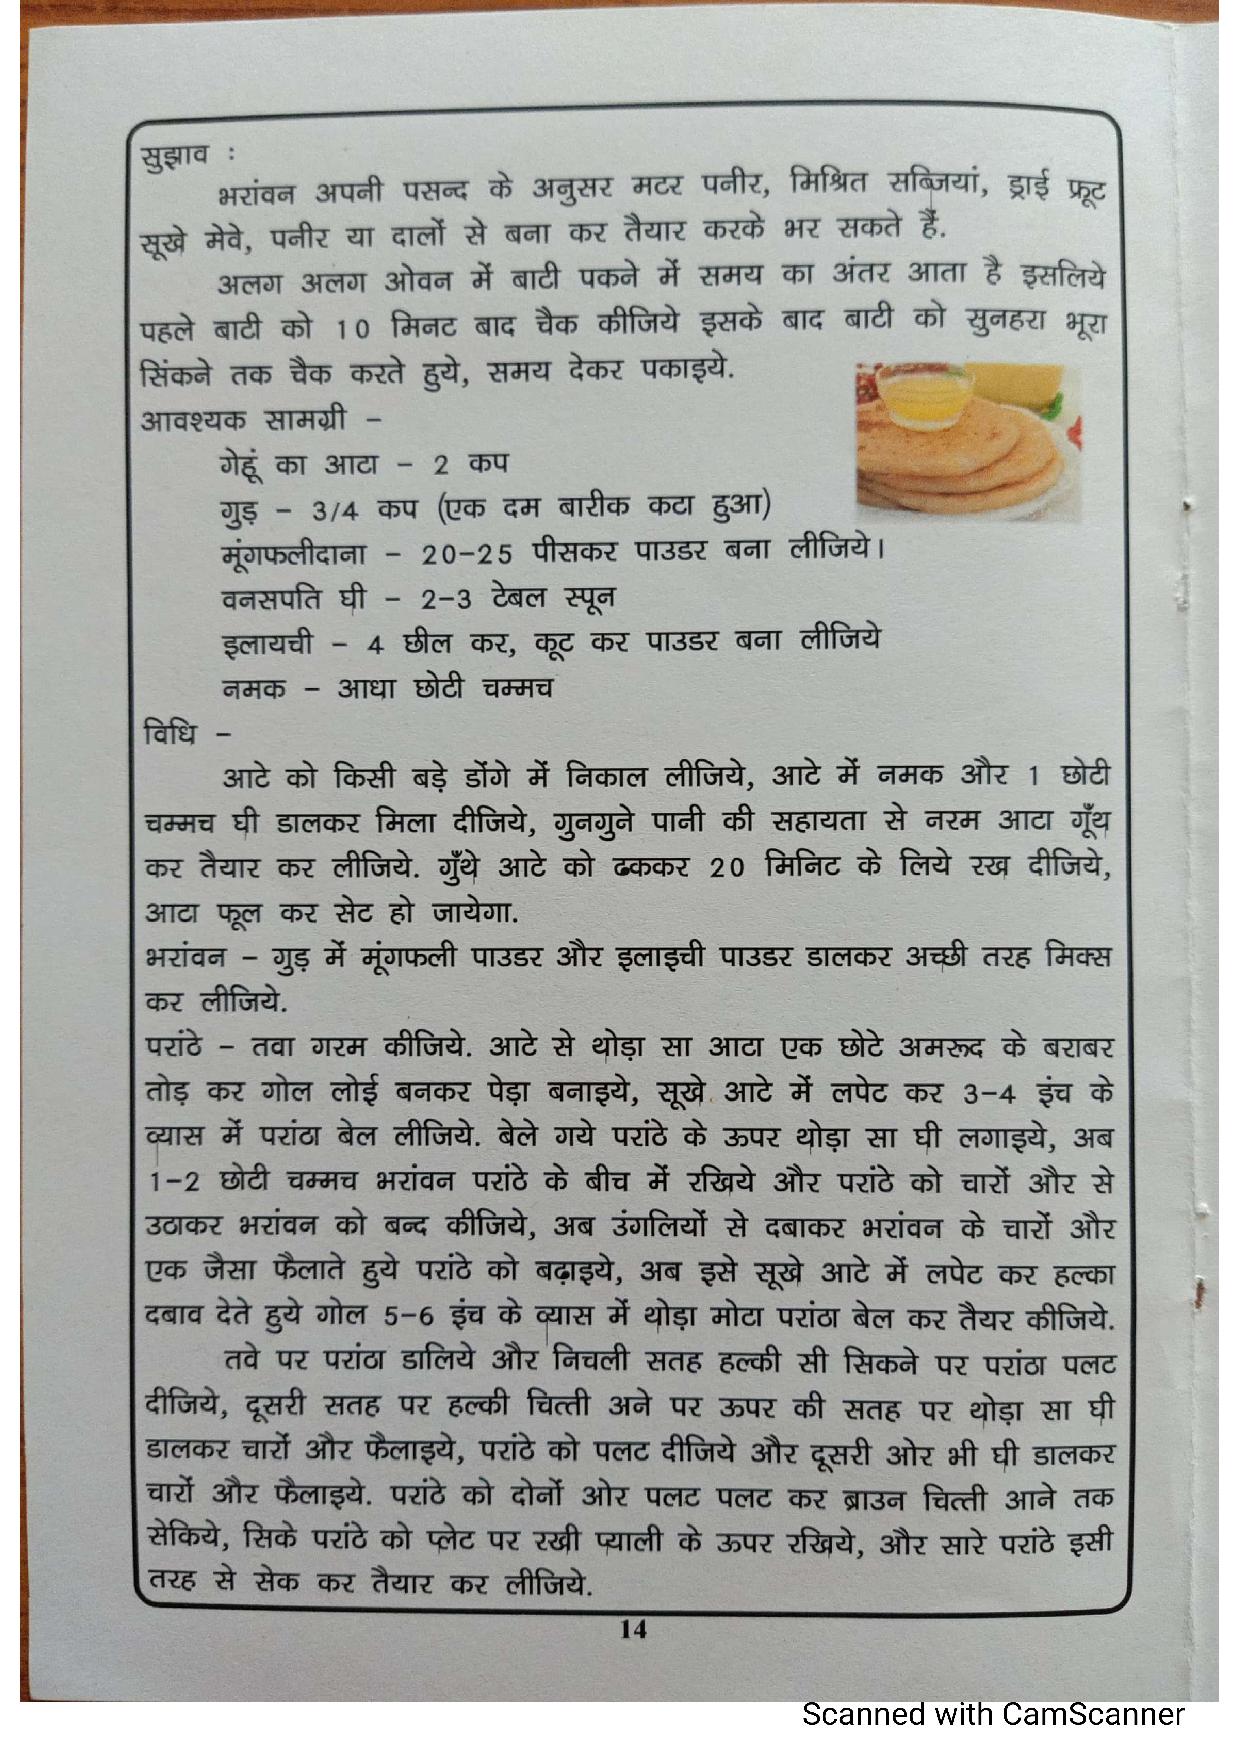 सुझाव :
भरांवन अपनी पसन्द के अनुसर मटर पनीर, मिश्रित सब्जियां, ड्राई फ्रूट
सूखे मेवे, पनीर या दालों से बना कर तैयार करके भर सकते हैं.
अलग अलग ओवन में बाटी पकने में समय का अंतर आता है इसलिये
पहले बाटी को 10 मिनट बाद चैक कीजिये इसके बाद बाटी को सुनहरा भूरा
सिंकने तक चैक करते हुये, समय देकर पकाइये.
आवश्यक सामग्री –
गेहूं का आटा – 2 कप
गुड़ – 3/4 कप (एक दम बारीक कटा हुआ)
मूंगफलीदाना – 20-25 पीसकर पाउडर बना लीजिये।
वनसपति घी – 2-3 टेबल स्पून
इलायची – 4 छील कर, कूट कर पाउडर बना लीजिये
नमक – आधा छोटी चम्मच
विधि –
आटे को किसी बड़े डोंगे में निकाल लीजिये, आटे में नमक और 1 छोटी
चम्मच घी डालकर मिला दीजिये, गुनगुने पानी की सहायता से नरम आटा गूँथ
कर तैयार कर लीजिये. गुँथे आटे को ढककर 20 मिनिट के लिये रख दीजिये,
आटा फूल कर सेट हो जायेगा.
भरांवन – गुड़ में मूंगफली पाउडर और इलाइची पाउडर डालकर अच्छी तरह मिक्स
कर लीजिये.
परांठे – तवा गरम कीजिये. आटे से थोड़ा सा आटा एक छोटे अमरूद के बराबर
तोड़ कर गोल लोई बनकर पेड़ा बनाइये, सूखे आटे में लपेट कर 3-4 इंच के
व्यास में परांठा बेल लीजिये. बेले गये परांठे के ऊपर थोड़ा सा घी लगाइये, अब
1-2 छोटी चम्मच भरांवन परांठे के बीच में रखिये और परांठे को चारों और से
उठाकर भरांवन को बन्द कीजिये, अब उंगलियों से दबाकर भरांवन के चारों और
एक जैसा फैलाते हुये परांठे को बढ़ाइये, अब इसे सूखे आटे में लपेट कर हल्का
दबाव देते हुये गोल 5-6 इंच के व्यास में थोड़ा मोटा परांठा बेल कर तैयर कीजिये.
तवे पर परांठा डालिये और निचली सतह हल्की सी सिकने पर परांठा पलट
दीजिये, दूसरी सतह पर हल्की चित्ती अने पर ऊपर की सतह पर थोड़ा सा घी
डालकर चारों और फैलाइये, परांठे को पलट दीजिये और दूसरी ओर भी घी डालकर
चारों और फैलाइये. परांठे को दोनों ओर पलट पलट कर ब्राउन चित्ती आने तक
सेकिये, सिके परांठे को प्लेट पर रखी प्याली के ऊपर रखिये, और सारे परांठे इसी
तरह से सेक कर तैयार कर लीजिये.
14
Scanned with CamScanner